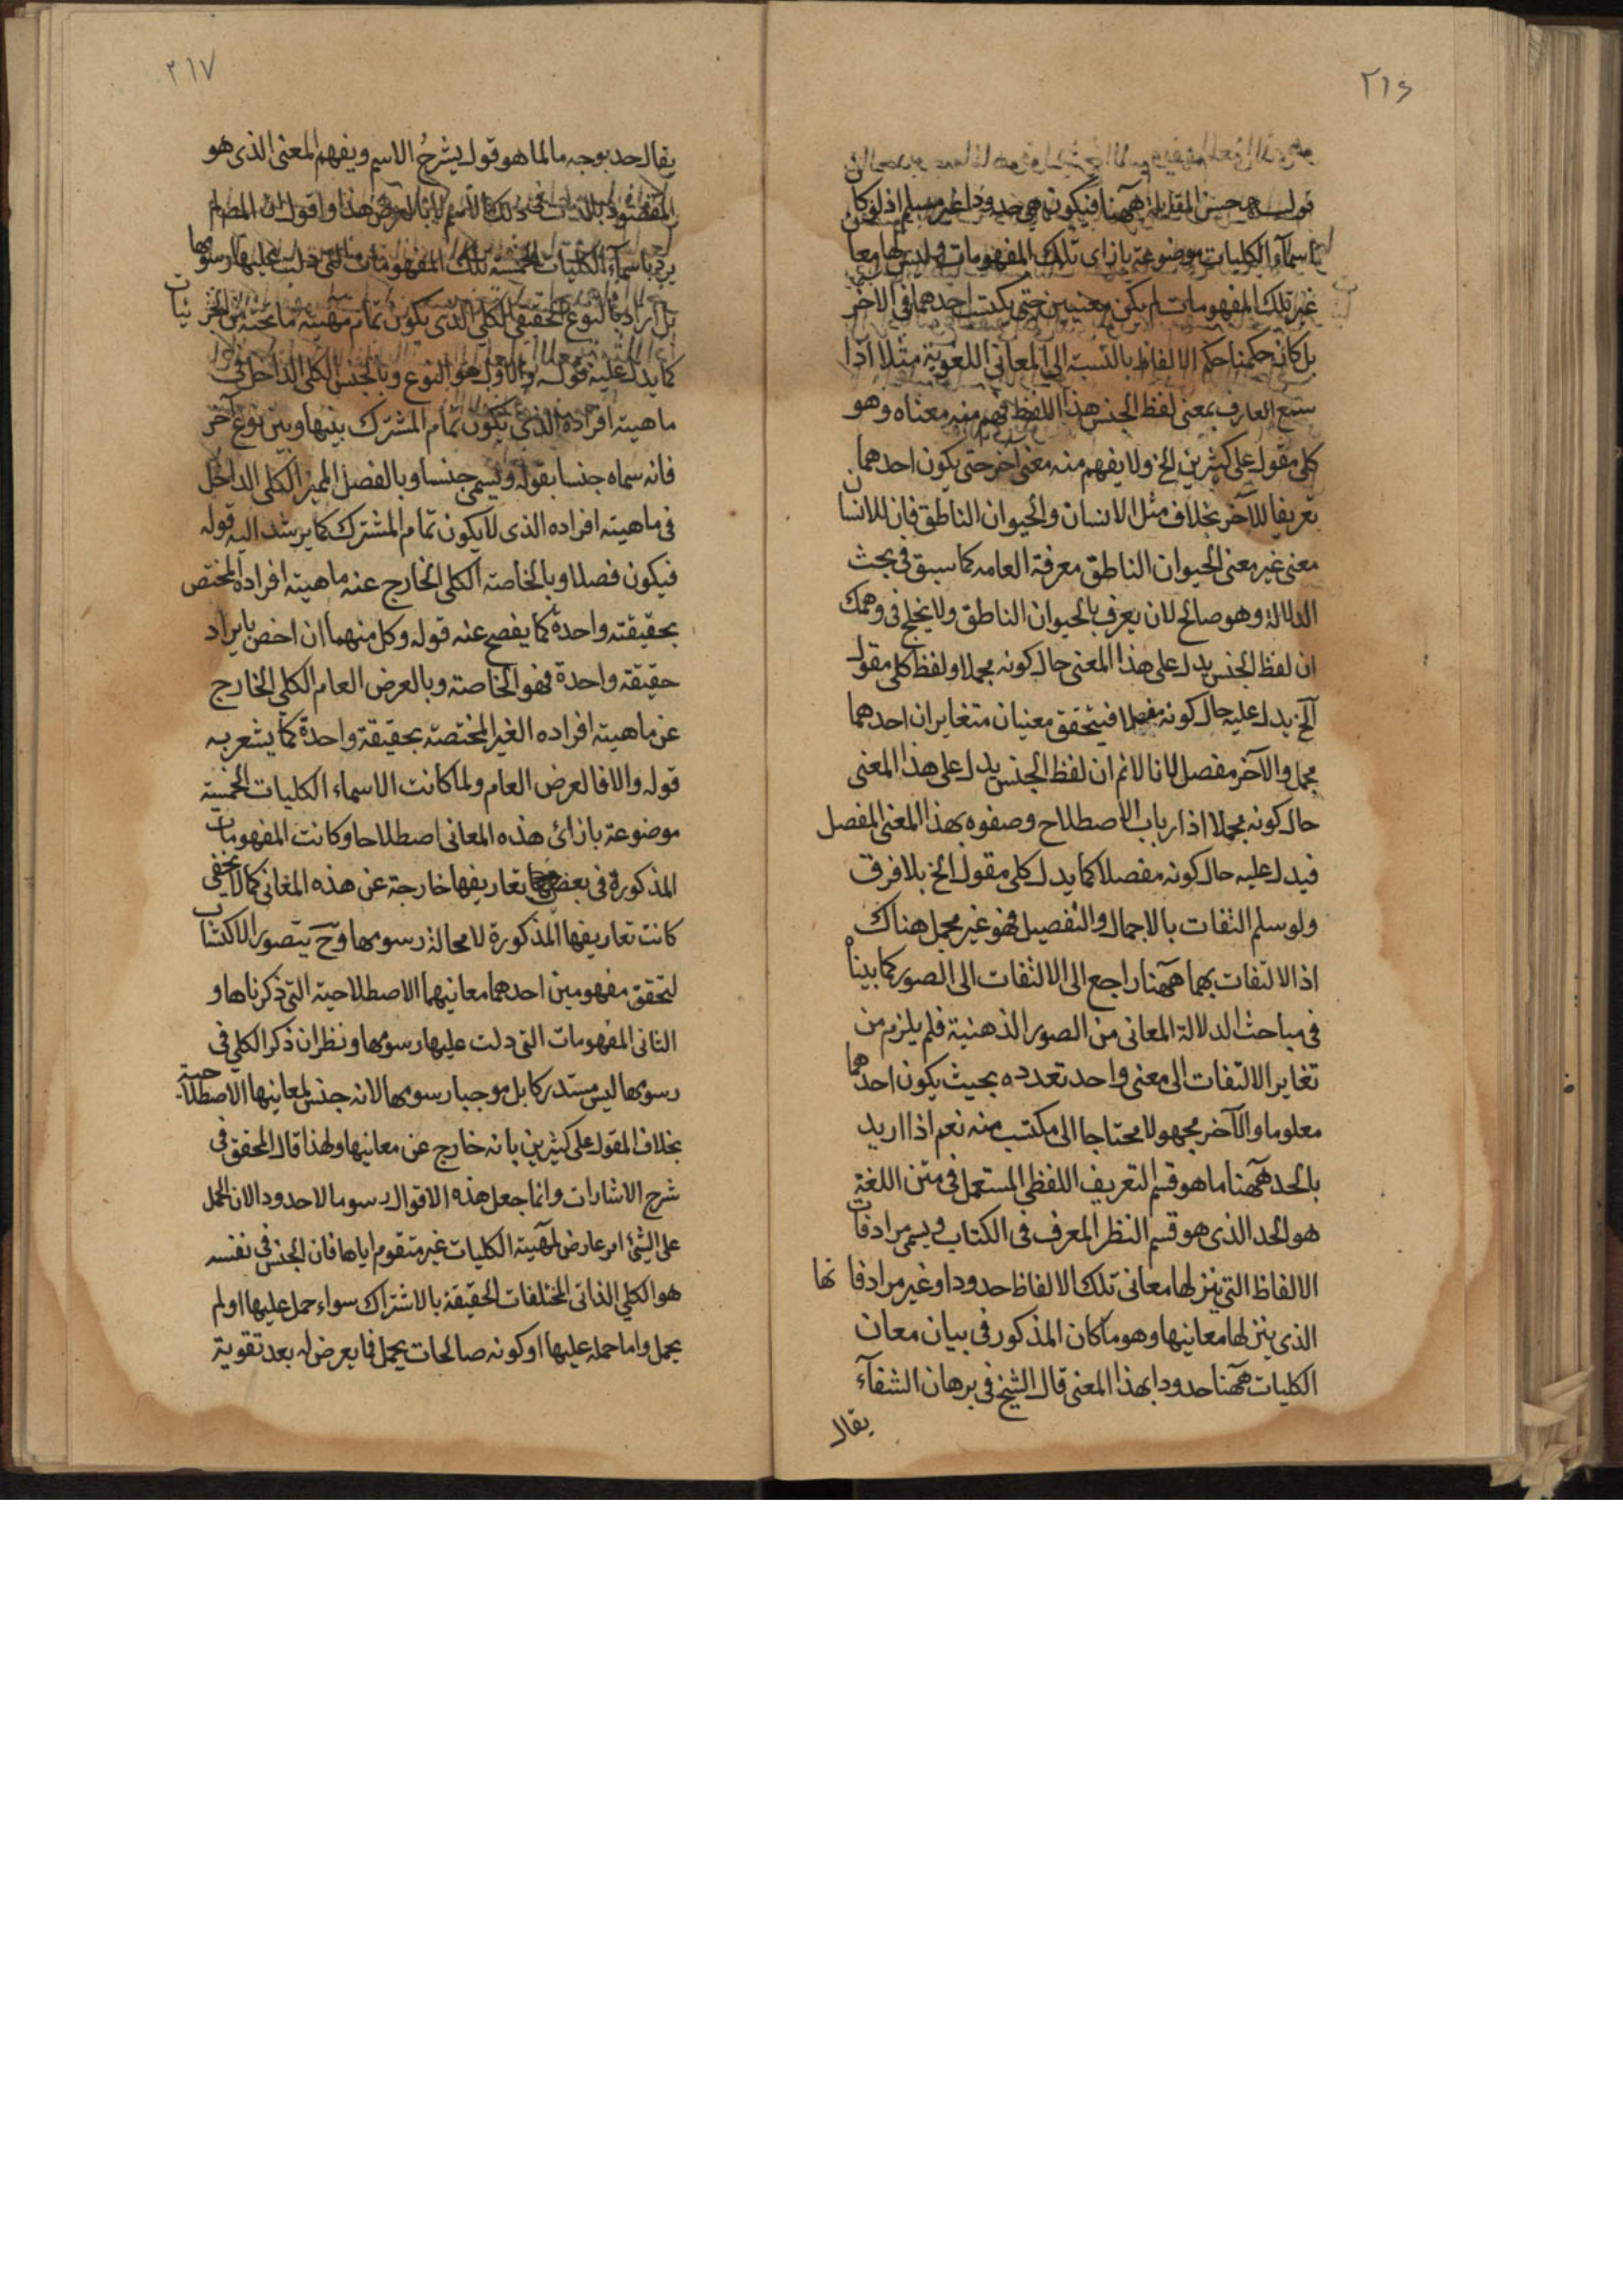 ٢١٦
فيكون هي حدودا غير مسلم اذ لو كا
اسمآء الكليات موضوعة بازاى تلك المفهومات وليس لها معا
غير تلك المفهومات لم يكن معنيين حتى يكتسب احدهما فى الآخر
بل كانه حكمنا حكم الالفاظ بالنسبة الى المعانى اللغوية مثلا اذا
سمع العارف بمعنى لفظ الجنس هذا اللفظ فهم منه معناه وهو
كلى مقول على كثيرين الخ ولا يفهم منه معنى آخر حتى يكون احدهما
تعريفا للآخر بخلاف مثل الانسان والحيوان الناطق فان للانسان
معنى غير معنى الحيوان الناطق معرفة العامه كما سبق فى بحث
الدلالة وهو صالح لان يعرف بالحيوان الناطق ولا يختلج فى وهمك
ان لفظ الجنس يدل على هذا المعنى حال كونه مجملا ولفظ كلى مقول
الخ يدل عليه حال كونه مفصلا فيتحقق معنيان متغايران احدهما
مجمل والآخر مفصل لانا لانم ان لفظ الجنس يدل على هذا المعنى
حال كونه مجملا اذ ارباب الاصطلاح وصفوه بهذا المعنى المفصل
فيدل عليه حال كونه مفصلا كما يدل كلى مقول الخ بلا فرق
ولو سلم التفات بالاجمال والتفصيل فهو غير مجمل هناك
اذ الالتفات بهما ههنا راجع الى الالتفات الى الصور كما بيناه
فى مباحث الدلالة المعانى من الصور الذهنية فلم يلزم من
تغاير الالتفات الى معنى واحد تعدده بحيث يكون احدهما
معلوما والآخر مجهولا محتاجا الى مكتسب منه نعم اذا اريد
بالحد ههنا ما هو قسم التعريف اللفظى المستعمل فى متن اللغة
هو الحد الذى هو قسم النظر المعرف فى الكتاب ويسمى مرادفات
الالفاظ التى ينزلها معانى تلك الالفاظ حدودا وغير مرادفاتها
الذى ينزلها معانيها وهو ما كان المذكور فى بيان معان
الكليات ههنا حدودا بهذا المعنى قال الشيخ فى برهان الشفآء
يقال
٢١٧
يقال حد بوجه ما لما هو قول يشرح الاسم ويفهم المعنى الذى هو
المقصود بالذات فى ذلك الاسم لا بالعرض هذا واقول ان المص لم
يرد باسمآء الكليات الخمسة تلك المفهومات التى دلت عليها رسومها
بل اراد بالنوع الحقيقى الكلى الذى يكون تمام مهية ما تحته من الجزئيات
كما يدل عليه قوله والاول هو النوع وبالجنس الكلى الداخل فى
ماهيته افراده الذى يكون تمام المشترك بينها وبين نوع آخر
فانه سماه جنسا بقوله ويسمى جنسا وبالفصل المميز الكلى الداخل
فى ماهيته افراده الذى لا يكون تمام المشترك كما يرشد اليه قوله
فيكون فصلا وبالخاصته الكلى الخارج عنه ماهيته افراده المختص
بحقيقته واحدة كما يفصح عنه قوله وكل منهما ان اختص بايراد
حقيقة واحدة فهو الخاصته وبالعرض العام الكلى الخارج
عن ماهيته افراده الغير المختصته بحقيقة واحدة كما يشعر به
قوله والا فالعرض العام ولما كانت الاسماء الكليات الخمسة
موضوعة بازائ هذه المعانى اصطلاحا وكانت المفهومات
المذكورة فى بعض تعاريفها خارجة عن هذه المعانى كما لا يخفى
كانت تعاريفها المذكورة لا محالة رسومها وح يتصور الاكتساب
لتحقق مفهومين احدهما معانيهما الاصطلاحية التى ذكرناها و
الثانى المفهومات التى دلت عليها رسومها ونظر ان ذكر الكلى فى
رسومها ليس مستدركا بل موجبا رسومها لانه جنس لمعانيها الاصطلاحية
بخلاف المقول على كثيرين بانه خارج عن معانيها ولهذا قال المحقق فى
شرح الاشارات وانما جعل هذه الاقوال رسوما لا حدودا لان الحمل
على الشئ امر عارض لمهية الكليات غير متقوم اياها فان الجنس فى نفسه
هو الكلى الذاتى لمختلفات الحقيقة بالاشتراك سواء حمل عليها او لم
يحمل واما حمله عليها او كونه صالحات يحمل فما يعرض له بعد تقويته